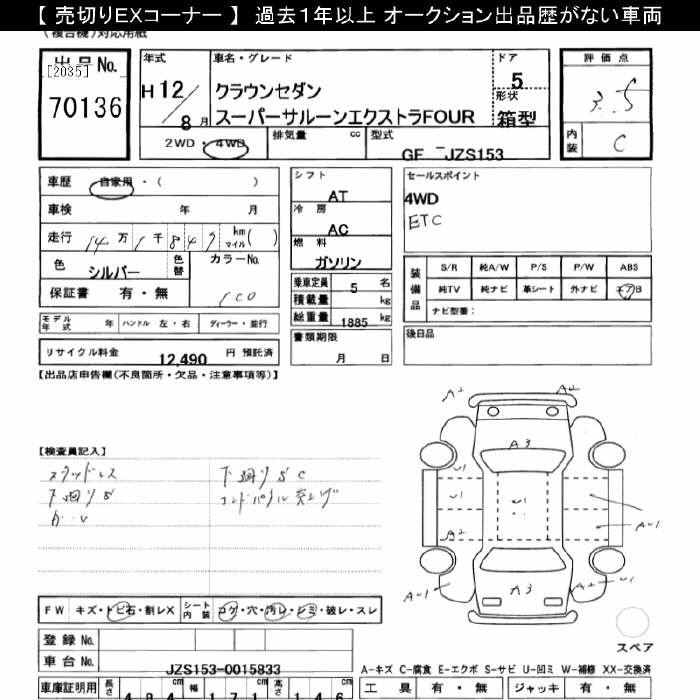 【 売切りEXコーナー 】 過去1年以上 オークション出品歴がない車両
(複合機)対応用紙
出品No.
[2035]
70136
年式
H12/8月
車名・グレード
クラウンセダン
スーパーサルーンエクストラFOUR
ドア
5
形状
箱型
評価点
3.5
内装
C
2WD・4WD
排気量 cc
型式
GF-JZS153
車歴 自家用・( )
車検 年 月
走行 14万1千847 km マイル( )
色 シルバー 色替
カラーNo.
1C0
保証書 有・無
シフト
AT
冷房
AC
燃料
ガソリン
乗車定員 5 名
積載量 kg
総重量 1885 kg
書類期限
月 日
セールスポイント
4WD
ETC
装備品
S/R 純A/W P/S P/W ABS
純TV 純ナビ 革シート 外ナビ エアB
ナビ型番:
後日品
モデル年式 年 ハンドル 左・右 ディーラー・並行
リサイクル料金 12,490 円 預託済
【出品店申告欄(不良箇所・欠品・注意事項等)】
【検査員記入】
スタッドレス
下廻りS
下廻りSC
A2
A2
A3
U1
U1
U1
A2
A3
A2
AU1
AU1
AU1
FW キズ・トビ石・割レX
シート内装 コゲ・穴・汚レ・シミ・破レ・スレ
登録No.
車台No.
JZS153-0015833
スペア
A-キズ C-腐食 E-エクボ S-サビ U-凹ミ W-補修 XX-交換済
車庫証明用 長さ 484 cm 幅 171 cm 高さ 146 cm
工具 有・無 ジャッキ 有・無